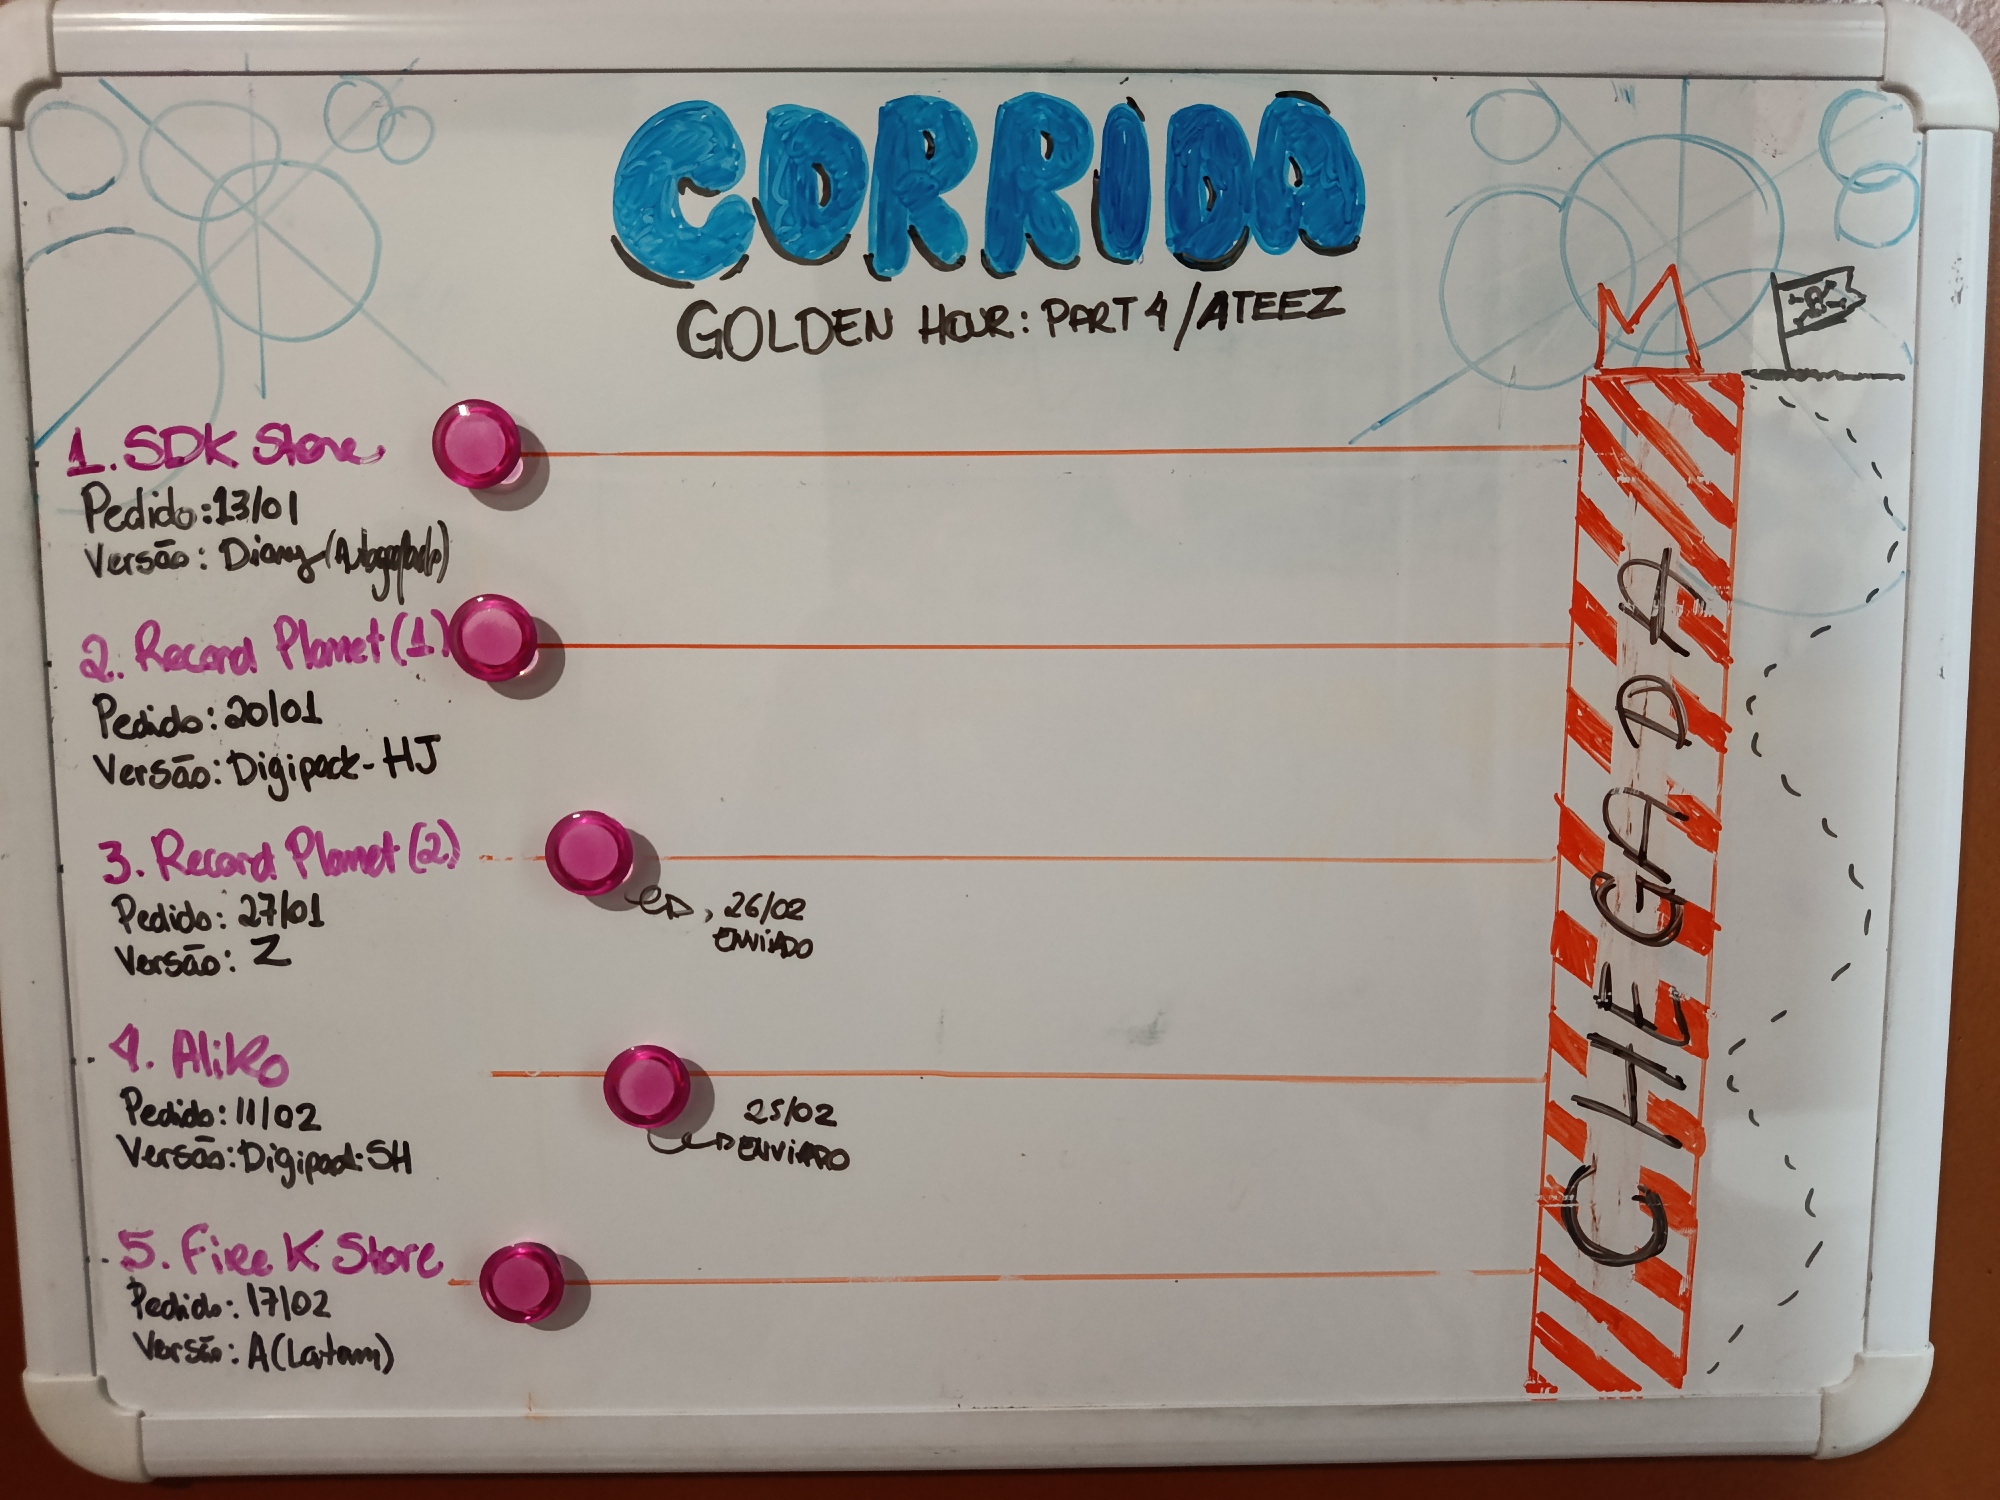 CORRIDA
GOLDEN HOUR: PART 4 / ATEEZ
1. SDK Store
Pedido: 13/01
Versão: Diary (Autografado)
2. Record Planet (1)
Pedido: 20/01
Versão: Digipack - HJ
3. Record Planet (2)
Pedido: 27/01
Versão: Z
26/02
ENVIADO
4. Aliko
Pedido: 11/02
Versão: Digipack: SH
25/02
ENVIADO
5. Fire K Store
Pedido: 17/02
Versão: A (Latam)
CHEGADA